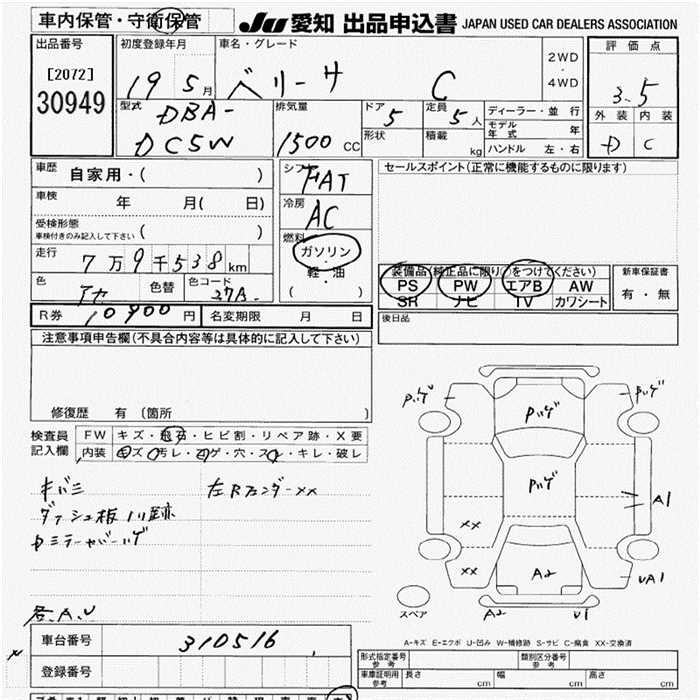 車内保管・守衛保管
JU 愛知 出品申込書 JAPAN USED CAR DEALERS ASSOCIATION
出品番号
[2072]
30949
初度登録年月
19 5月
車名・グレード
ベリーサ C
2WD
・
4WD
評価点
3.5
外装 内装
D C
型式
DBA-
DC5W
排気量
1500 CC
ドア
5
定員
5人
形状
積載
kg
ディーラー・並行
モデル年式 年
ハンドル 左・右
車歴
自家用・( )
車検
年 月( 日)
受検形態
車検付きのみ記入して下さい ( )
走行
7万9千538km
色
アカ
色替
色コード
27A
シフト
FAT
冷房
AC
燃料
ガソリン
・
軽・油
( )
セールスポイント(正常に機能するものに限ります)
装備品(純正品に限り○をつけてください)
PS PW エアB AW
SR ナビ TV カワシート
新車保証書
有・無
R券 10900円
名変期限 月 日
後日品
注意事項申告欄(不具合内容等は具体的に記入して下さい)
修復歴 有 〔箇所 〕
検査員
記入欄
FW キズ・飛石・ヒビ割・リペア跡・X要
内装 キズ・汚レ・コゲ・穴・スレ・キレ・破レ
キバミ
左Rフェンダーxx
ダッシュ板ノリ跡
各A,U
Pハゲ
Pハゲ
Pハゲ
Pハゲ
A1
xx
xx
A2
UA1
スペア
A2
U1
A-キズ E-エクボ U-凹み W-補修跡 S-サビ C-腐食 XX-交換済
車台番号
310516
登録番号
形式指定番号
参考
類別区分番号
参考
車庫証明用
参考
長さ cm
幅 cm
高さ cm